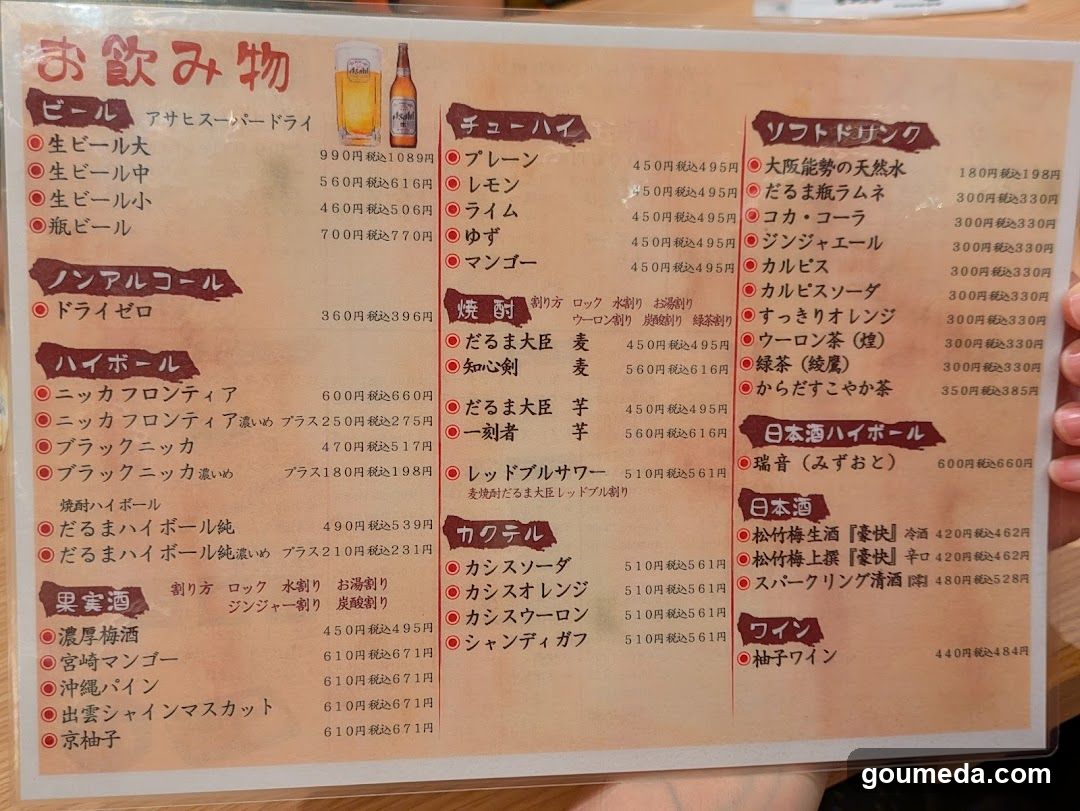 お飲み物
ビール アサヒスーパードライ
生ビール大 990円税込1089円
生ビール中 560円税込616円
生ビール小 460円税込506円
瓶ビール 700円税込770円
ノンアルコール
ドライゼロ 360円税込396円
ハイボール
ニッカフロンティア 600円税込660円
ニッカフロンティア濃いめ プラス250円税込275円
ブラックニッカ 470円税込517円
ブラックニッカ濃いめ プラス180円税込198円
焼酎ハイボール
だるまハイボール純 490円税込539円
だるまハイボール純濃いめ プラス210円税込231円
果実酒 割り方 ロック 水割り お湯割り
ジンジャー割り 炭酸割り
濃厚梅酒 450円税込495円
宮崎マンゴー 610円税込671円
沖縄パイン 610円税込671円
出雲シャインマスカット 610円税込671円
京柚子 610円税込671円
Asahi
Asahi
チューハイ
プレーン 450円税込495円
レモン 450円税込495円
ライム 450円税込495円
ゆず 450円税込495円
マンゴー 450円税込495円
焼酎 割り方 ロック 水割り お湯割り
ウーロン割り 炭酸割り 緑茶割り
だるま大臣 麦 450円税込495円
知心剣 麦 560円税込616円
だるま大臣 芋 450円税込495円
一刻者 芋 560円税込616円
レッドブルサワー 510円税込561円
麦焼酎だるま大臣レッドブル割り
カクテル
カシスソーダ 510円税込561円
カシスオレンジ 510円税込561円
カシスウーロン 510円税込561円
シャンディガフ 510円税込561円
ソフトドリンク
大阪能勢の天然水 180円税込198円
だるま瓶ラムネ 300円税込330円
コカ・コーラ 300円税込330円
ジンジャエール 300円税込330円
カルピス 300円税込330円
カルピスソーダ 300円税込330円
すっきりオレンジ 300円税込330円
ウーロン茶（煌） 300円税込330円
緑茶（綾鷹） 300円税込330円
からだすこやか茶 350円税込385円
日本酒ハイボール
瑞音（みずおと） 600円税込660円
日本酒
松竹梅生酒『豪快』冷酒 420円税込462円
松竹梅上撰『豪快』辛口 420円税込462円
スパークリング清酒『澪』 480円税込528円
ワイン
柚子ワイン 440円税込484円
goumeda.com